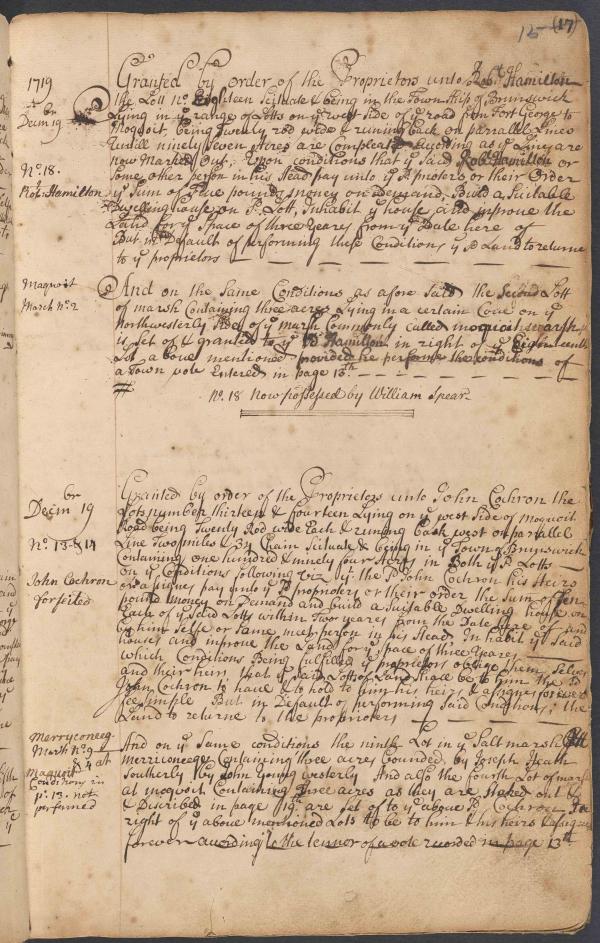 15 (17)
1719
Decm br 19
Granted by order of the Proprietors unto Robt. Hamilton
the Lott no. Eighteen Scituate & being in the Township of Brunswick
Lying in ye range of Lotts on ye west side of ye road from Fort George to
Moqquoit, being Twenty rod wide & runing back on parralel Lines
untill ninety seven Acres are Compleat According as ye Lines are
now Marked Out, Upon conditions that ye Said Robt Hamilton or
No. 18.
Robt: Hamilton
Some other person in his Stead pay unto ye Proprietors or their Order
ye Sum of Five pounds money on Demand, Build a Suitable
Dwelling house on sd. Lott, Inhabit ye house, and improve the
Land for ye Space of three Years from ye Date here of
But in Default of performing these Conditions ye sd Land to returne
to ye proprietors
Maquoit
March No. 2
And on the Same Conditions as afore Said the Second Lott
of marsh Containing three acres Lying in a certain Cove on ye
Northwesterly side of ye marsh Commonly called moquoit marsh
is set of & granted to ye sd Hamilton in right of ye Eighteenth
Lot above mentioned provided he performe the conditions of
a Town vote Entered in page 13th
no. 18 Now possessed by William Spear
Decm br 19
No. 13 & 14
John Cochron
forfeited
Granted by order of the Proprietors unto John Cochron the
Lots number thirteen & fourteen Lying on ye west side of moquoit
Road being Twenty Rod wide Each & runing back west on parallel
Line Two miles & Chain Scituate & being in ye Town of Brunswick
Containing one hundred & ninety four Acres in Both ye sd Lotts
On ye Conditions following viz: ye sd John Cochron his Heirs
or assignes pay unto ye sd proprietors or their order the Sum of Ten
pounds money on Demand and build a Suitable Dwelling house on
Each of ye said Lotts within Two years from the Date here of and
by him Selfe or Some meet person in his Stead Inhabit ye Said
houses and improve the Land for ye space of three Yeares
which Conditions Being fulfilled ye proprietors oblige them Selves
and their heirs that ye said Lotts of Land Shall be to him the sd
John Cochron to have & to hold to him his heirs & assignes for ever
fee simple But in Default of performing Said Conditions, the
Land to returne to the proprietors
Merryconeeg
Marsh No. 9
& 4 at
Maquoit
Conditions in
p. 13. not
performed
And on ye Same conditions the ninth Lot in ye Salt marsh att
merriconeege Containing three acres bounded by Joseph Heath
Southerly by John Young westerly And also the fourth Lot of marsh
at moqvoit Containing three acres as they are Staked out &
& Discribed in page 19th are set of to ye above sd Cochron In
right of ye above mentioned Lots to be to him & his heirs & assignes
forever according to the tennor of a vote recorded in page 13th